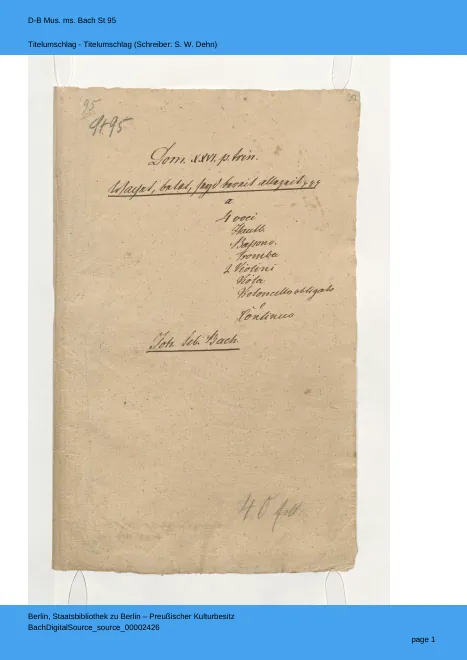 D-B Mus. ms. Bach St 95
Titelumschlag - Titelumschlag (Schreiber: S. W. Dehn)
95
St 95
Dom. XXVI. p. trin.
Wachet, betet, seyd bereit allezeit
a
4 voci
Hautb.
Bassono.
Tromba
2 Violini
Viola
Violoncello obligato
e
Continuo
Joh. Seb. Bach.
40
Berlin, Staatsbibliothek zu Berlin – Preußischer Kulturbesitz
BachDigitalSource_source_00002426
page 1